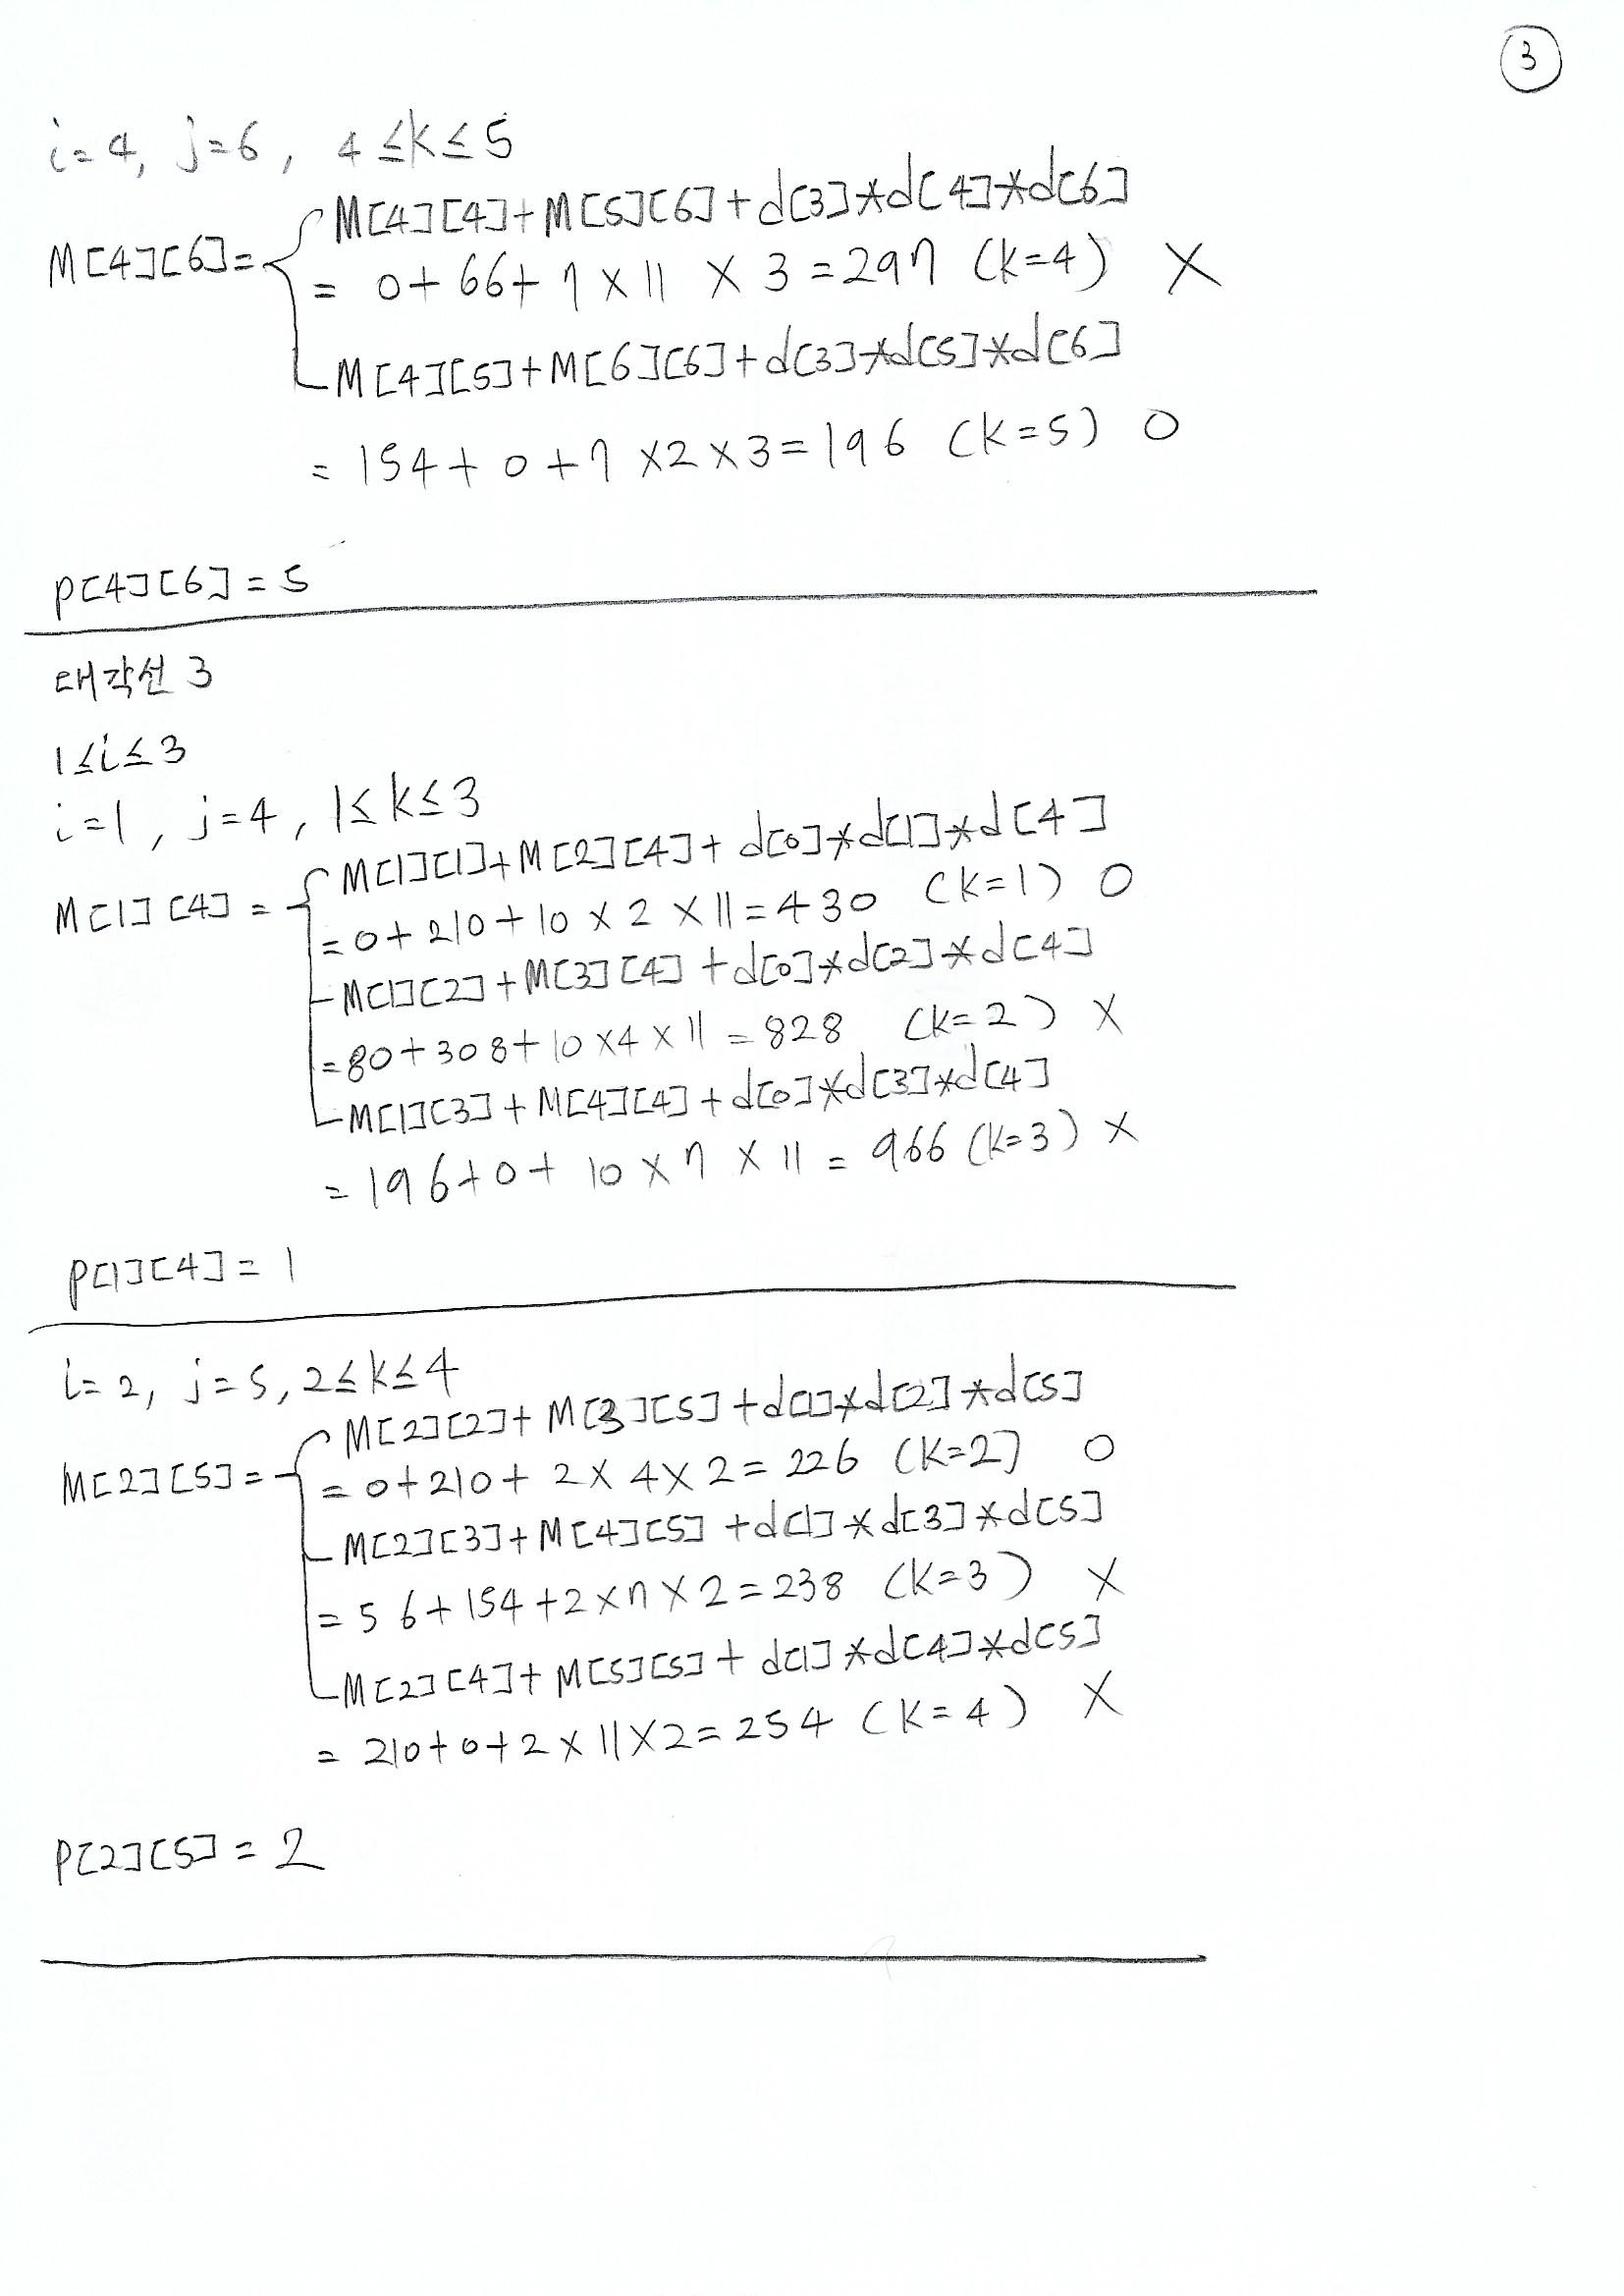 3
i=4, j=6, 4≤k≤5
M[4][4]+M[5][6]+d[3]*d[4]*d[6]
M[4][6]=
= 0+66+7×11×3=297 (k=4) X
M[4][5]+M[6][6]+d[3]*d[5]*d[6]
=154+0+7×2×3=196 (k=5) O
P[4][6]=5
대각선 3
1≤i≤3
i=1, j=4, 1≤k≤3
M[1][1]+M[2][4]+d[0]*d[1]*d[4]
M[1][4]=
=0+210+10×2×11=430 (k=1) O
M[1][2]+M[3][4]+d[0]*d[2]*d[4]
=80+308+10×4×11=828 (k=2) X
M[1][3]+M[4][4]+d[0]*d[3]*d[4]
=196+0+10×7×11=966 (k=3) X
P[1][4]=1
i=2, j=5, 2≤k≤4
M[2][2]+M[3][5]+d[1]*d[2]*d[5]
M[2][5]=
=0+210+2×4×2=226 (k=2] O
M[2][3]+M[4][5]+d[1]*d[3]*d[5]
=56+154+2×7×2=238 (k=3) X
M[2][4]+M[5][5]+d[1]*d[4]*d[5]
=210+0+2×11×2=254 (k=4) X
P[2][5]=2